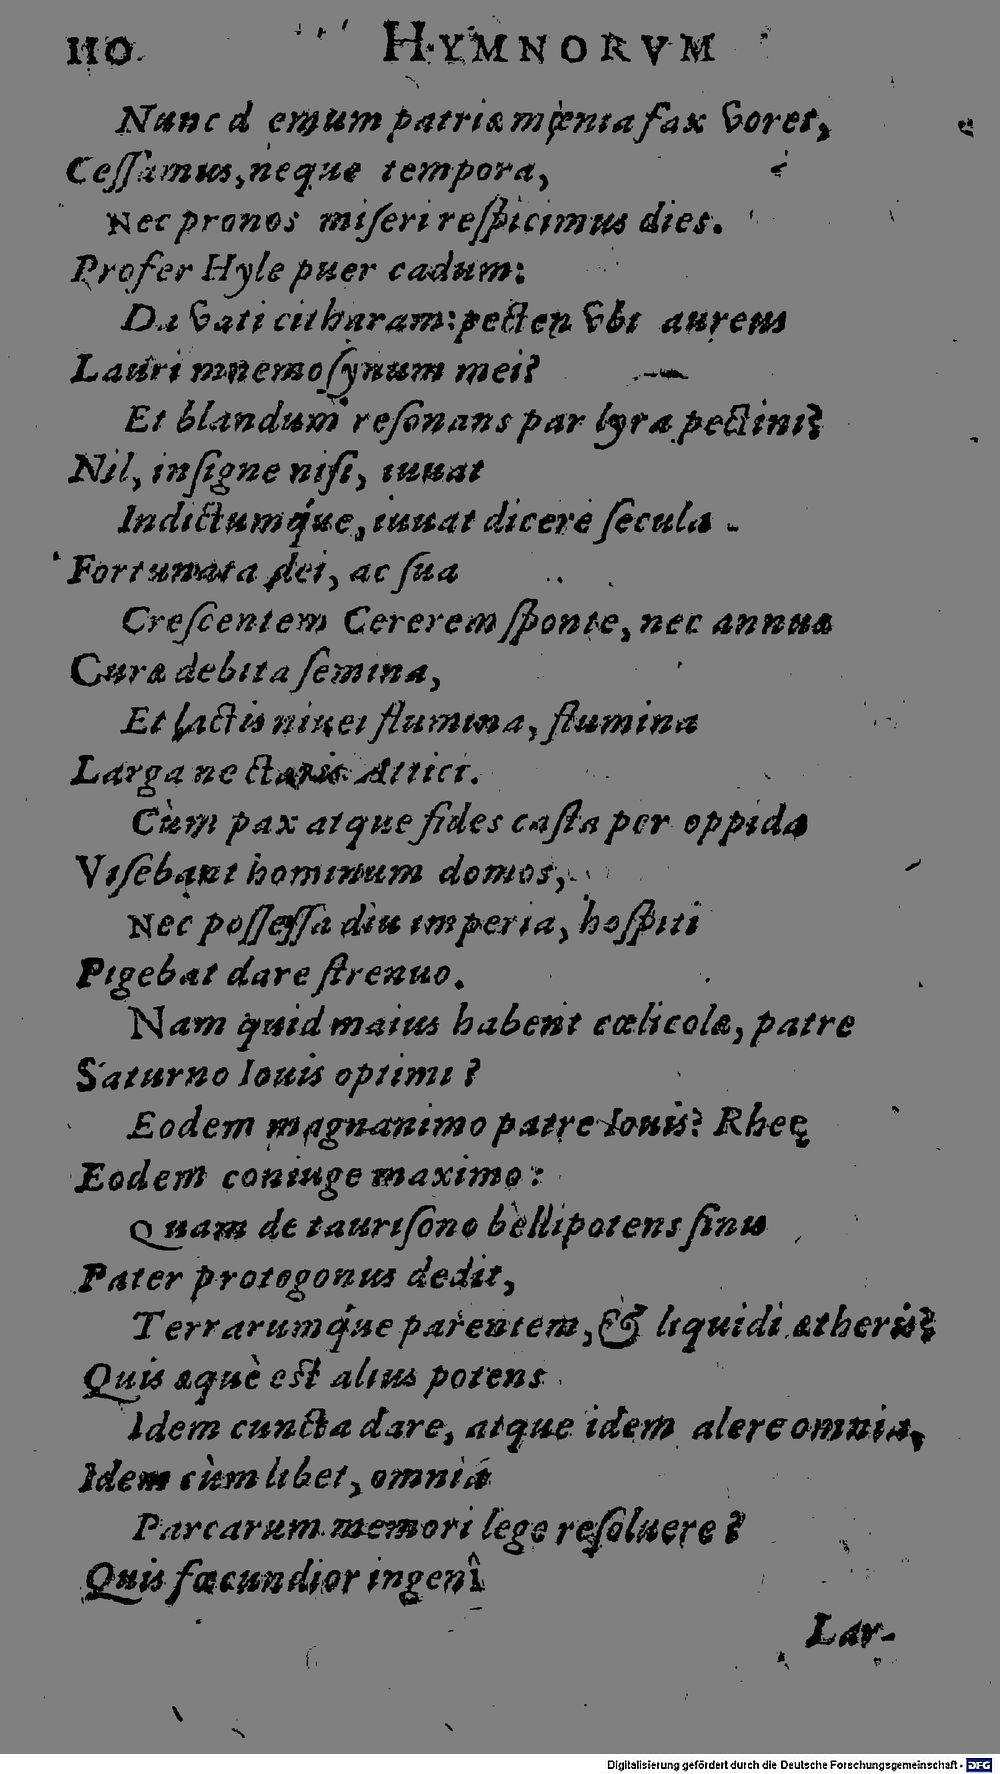 110 HYMNORVM
Nunc demum patriæ mœnia fax voret,
Ceſſamus, neque tempora,
Nec pronos miſeri reſpicimus dies.
Profer Hyle puer cadum:
Da vati citharam: pecten vbi aureus
Lauri mnemoſynum mei?
Et blandum reſonans par lyra pectini?
Nil, inſigne niſi, iuuat
Indictumq́ue, iuuat dicere ſecula
Fortunata dei, ac ſua
Creſcentem Cererem ſponte, nec annuæ
Curæ debita ſemina,
Et lactis niuei flumina, flumina
Larga nectaris Attici.
Cùm pax atque fides caſta per oppida
Viſebant hominum domos,
Nec poſſeſſa diu imperia, hoſpiti
Pigebat dare ſtrenuo.
Nam quid maius habent cœlicolæ, patre
Saturno Iouis optimi?
Eodem magnanimo patre Iouis? Rheę
Eodem coniuge maximo:
Quam de tauriſono bellipotens ſinu
Pater protogonus dedit,
Terrarumq́ue parentem, & liquidi ætheris?
Quis æquè eſt alius potens
Idem cuncta dare, atque idem alere omnia,
Idem cùm libet, omnia
Parcarum memori lege reſoluere?
Quis fœcundior ingenî
Lar-
Digitalisierung gefördert durch die Deutsche Forschungsgemeinschaft - DFG